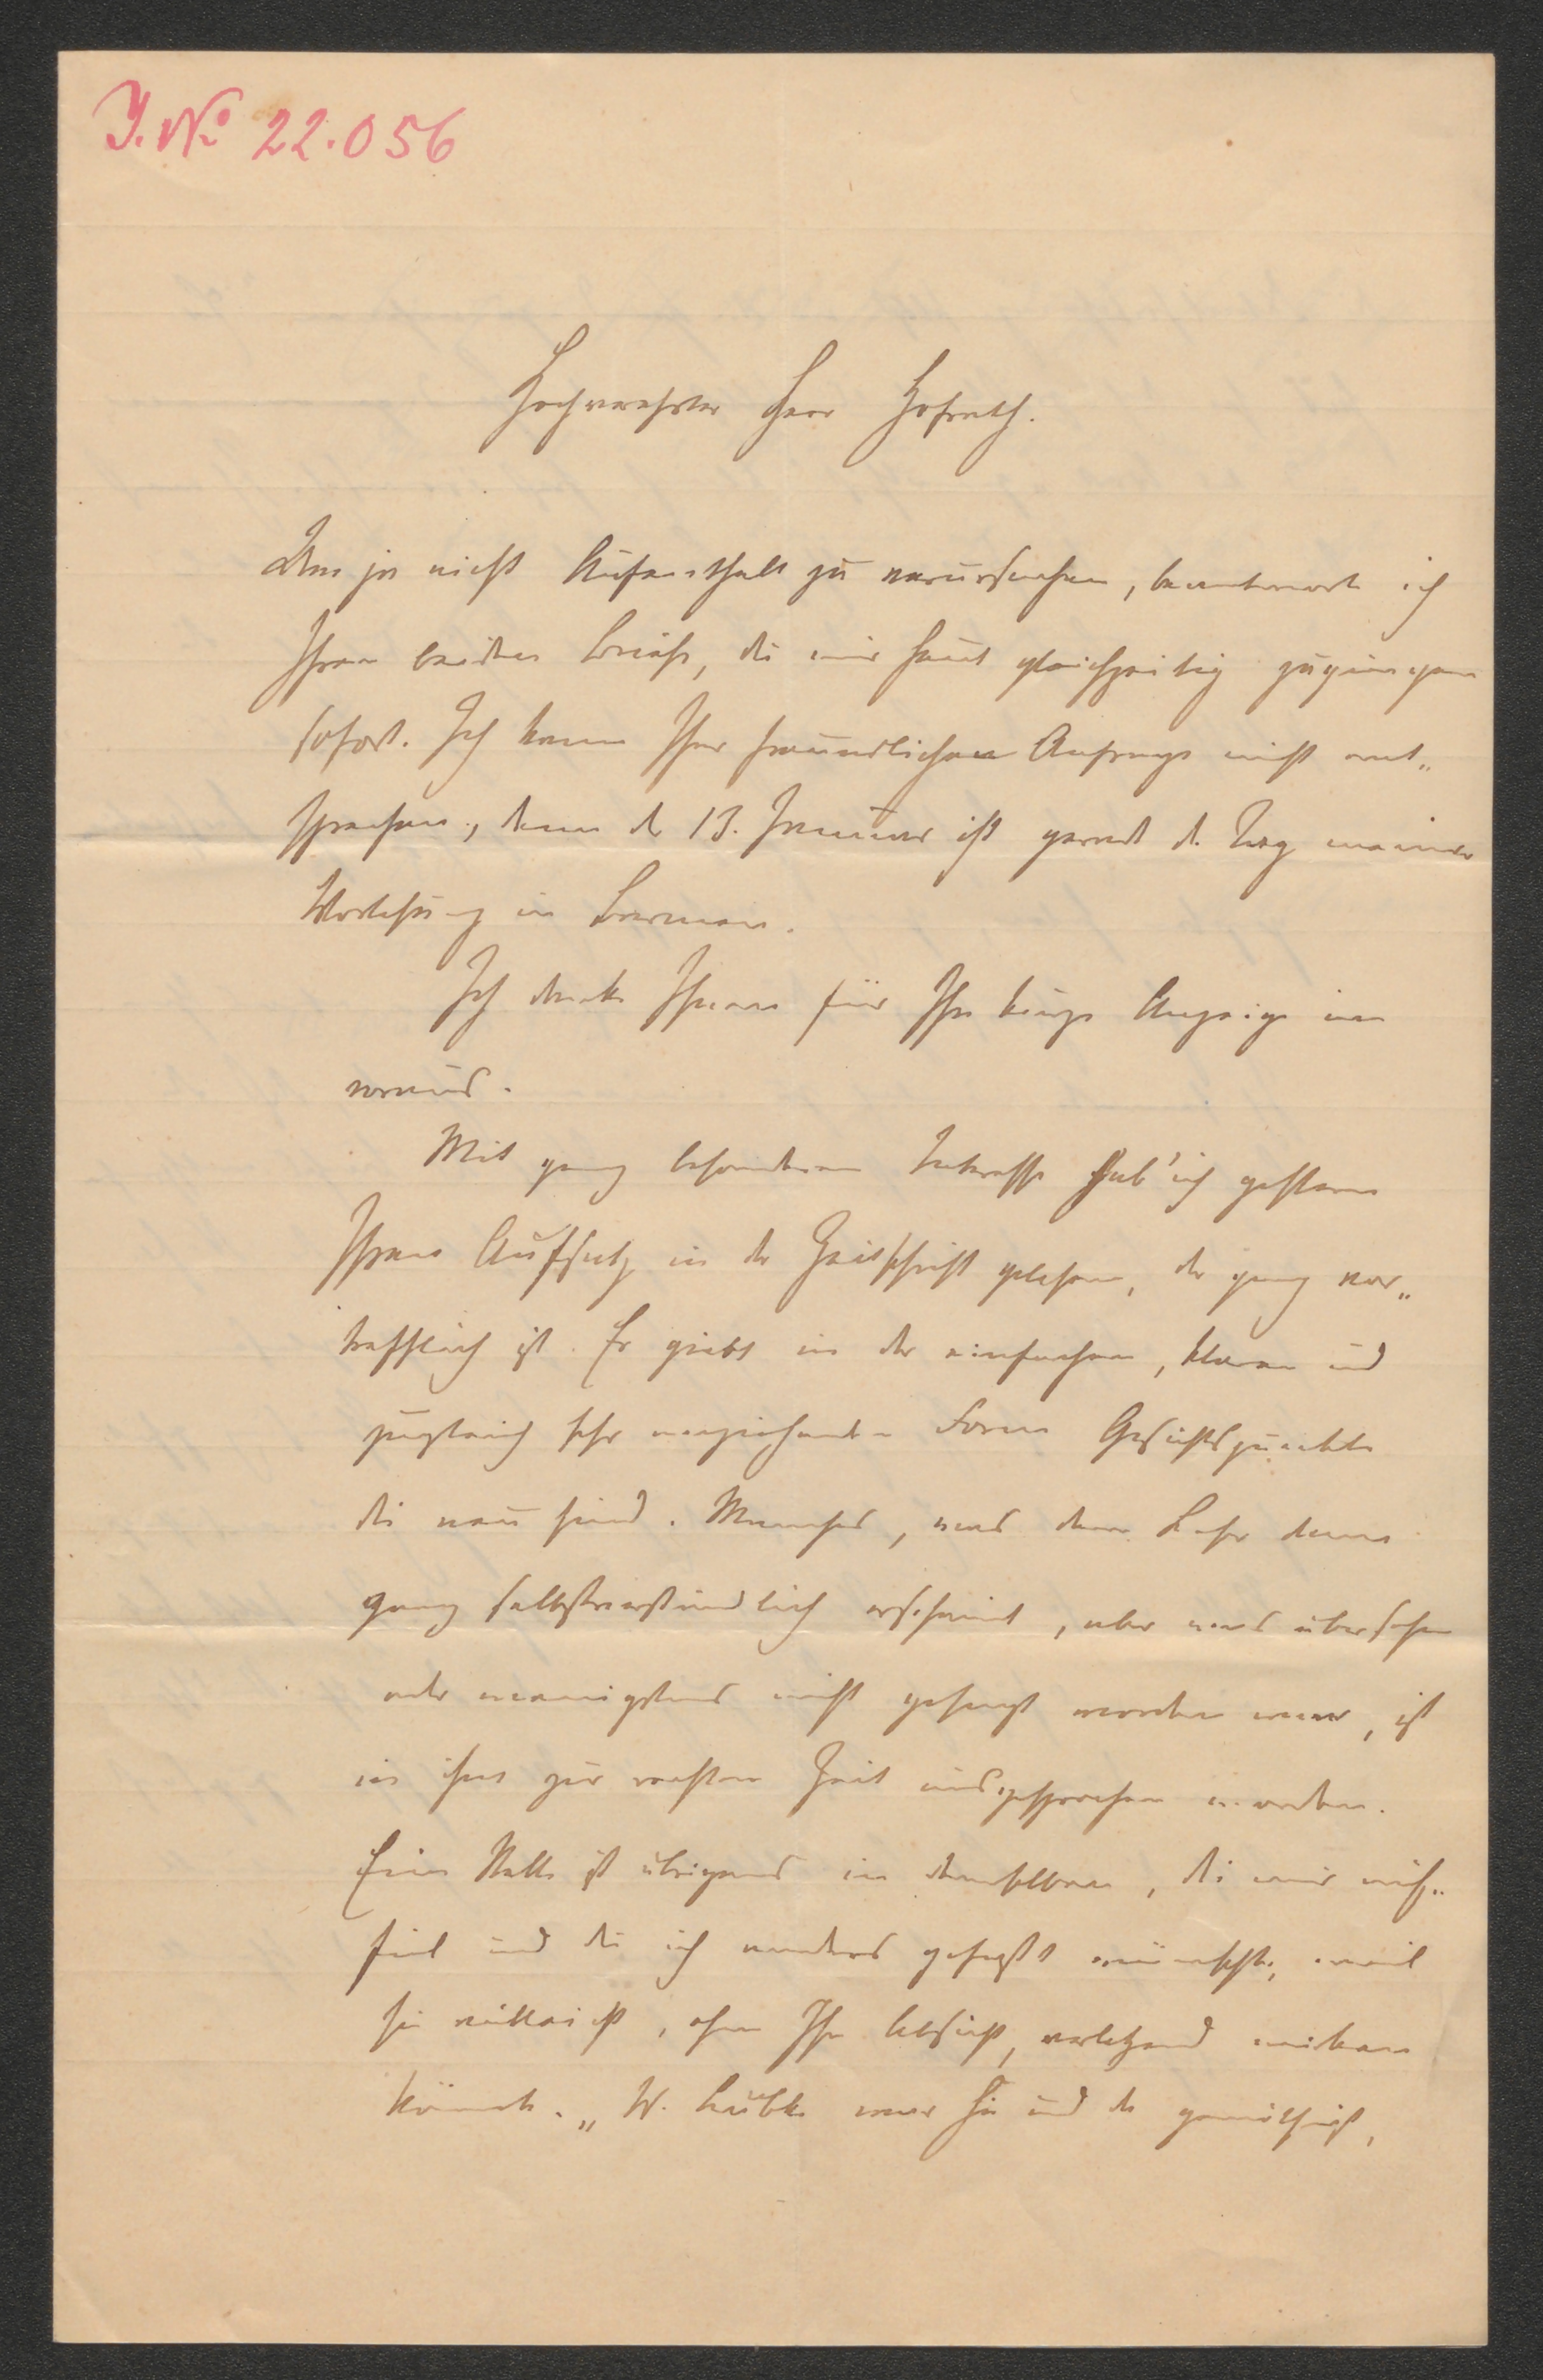 J. No 22.056
Hochverehrter Herr Hofrath.
Um ja nicht Aufenthalt zu verursachen, beantworte ich
Ihren beiden Briefe, die mir heut gleichzeitig zugingen
sofort. Ich kann Ihrer freundlichen Anfrage nicht ent„
sprechen, denn der 13. Januar ist gerade der Tag meiner
Vorlesung in Bremen.
Ich danke Ihnen für Ihre kurze Anzeige im
voraus.
Mit ganz besonderem Interesse hab' ich gestern
Ihren Aufsatz in der Zeitschrift gelesen, der ganz vor„
trefflich ist. Er giebt in der einfachen, klaren und
zugleich sehr anziehenden Form Gesichtspunkte
die neu sind. Manches, was dem Leser dann
ganz selbstverständlich erscheint, aber was übersehen
oder wenigstens nicht gesagt worden war, ist
in ihm zur rechten Zeit ausgesprochen worden.
Eine Stelle ist übrigens in demselben, die mir miß„
fiel und die ich anders gefaßt wünschte, weil
sie vielleicht, ohne Ihre Absicht, verletzend wirken
könnte. „W. Lübke war hie und da